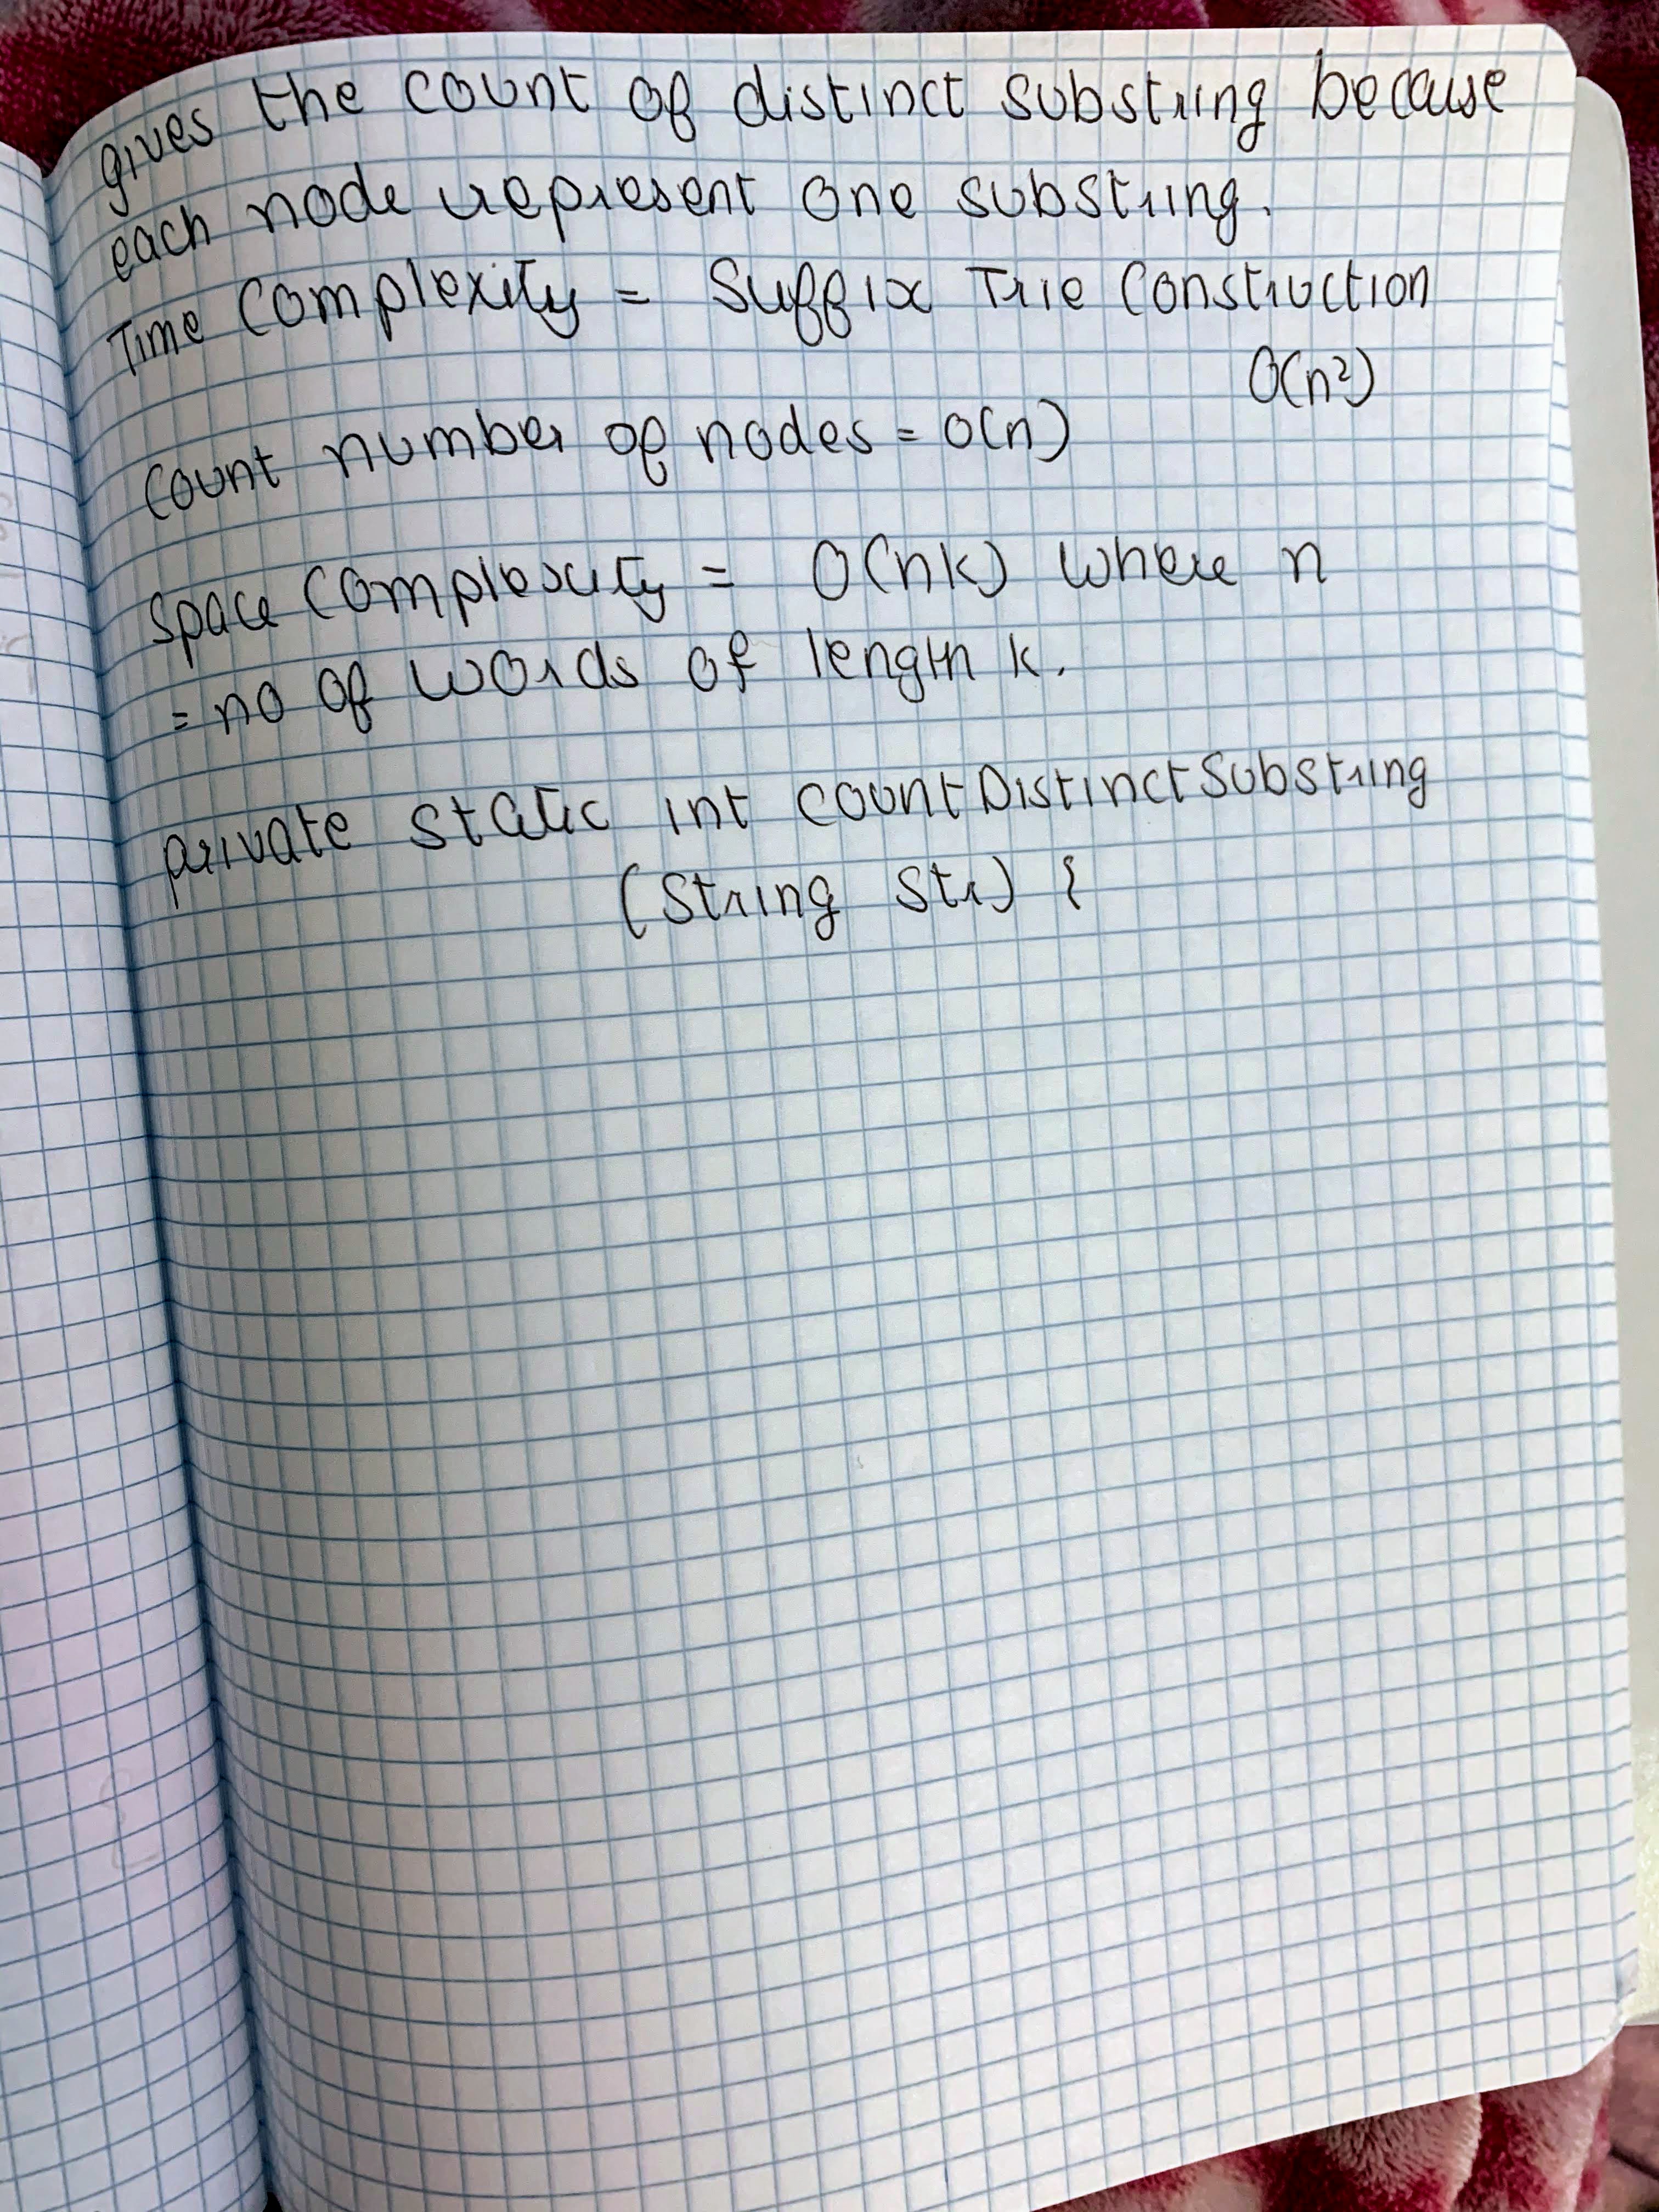 gives the count of distinct substring because
each node represent one substring.
Time Complexity = Suffix Trie Construction
O(n²)
Count number of nodes = O(n)
Space Complexity = O(nk) where n
= no of words of length k.
private static int countDistinctSubstring
(String str) {